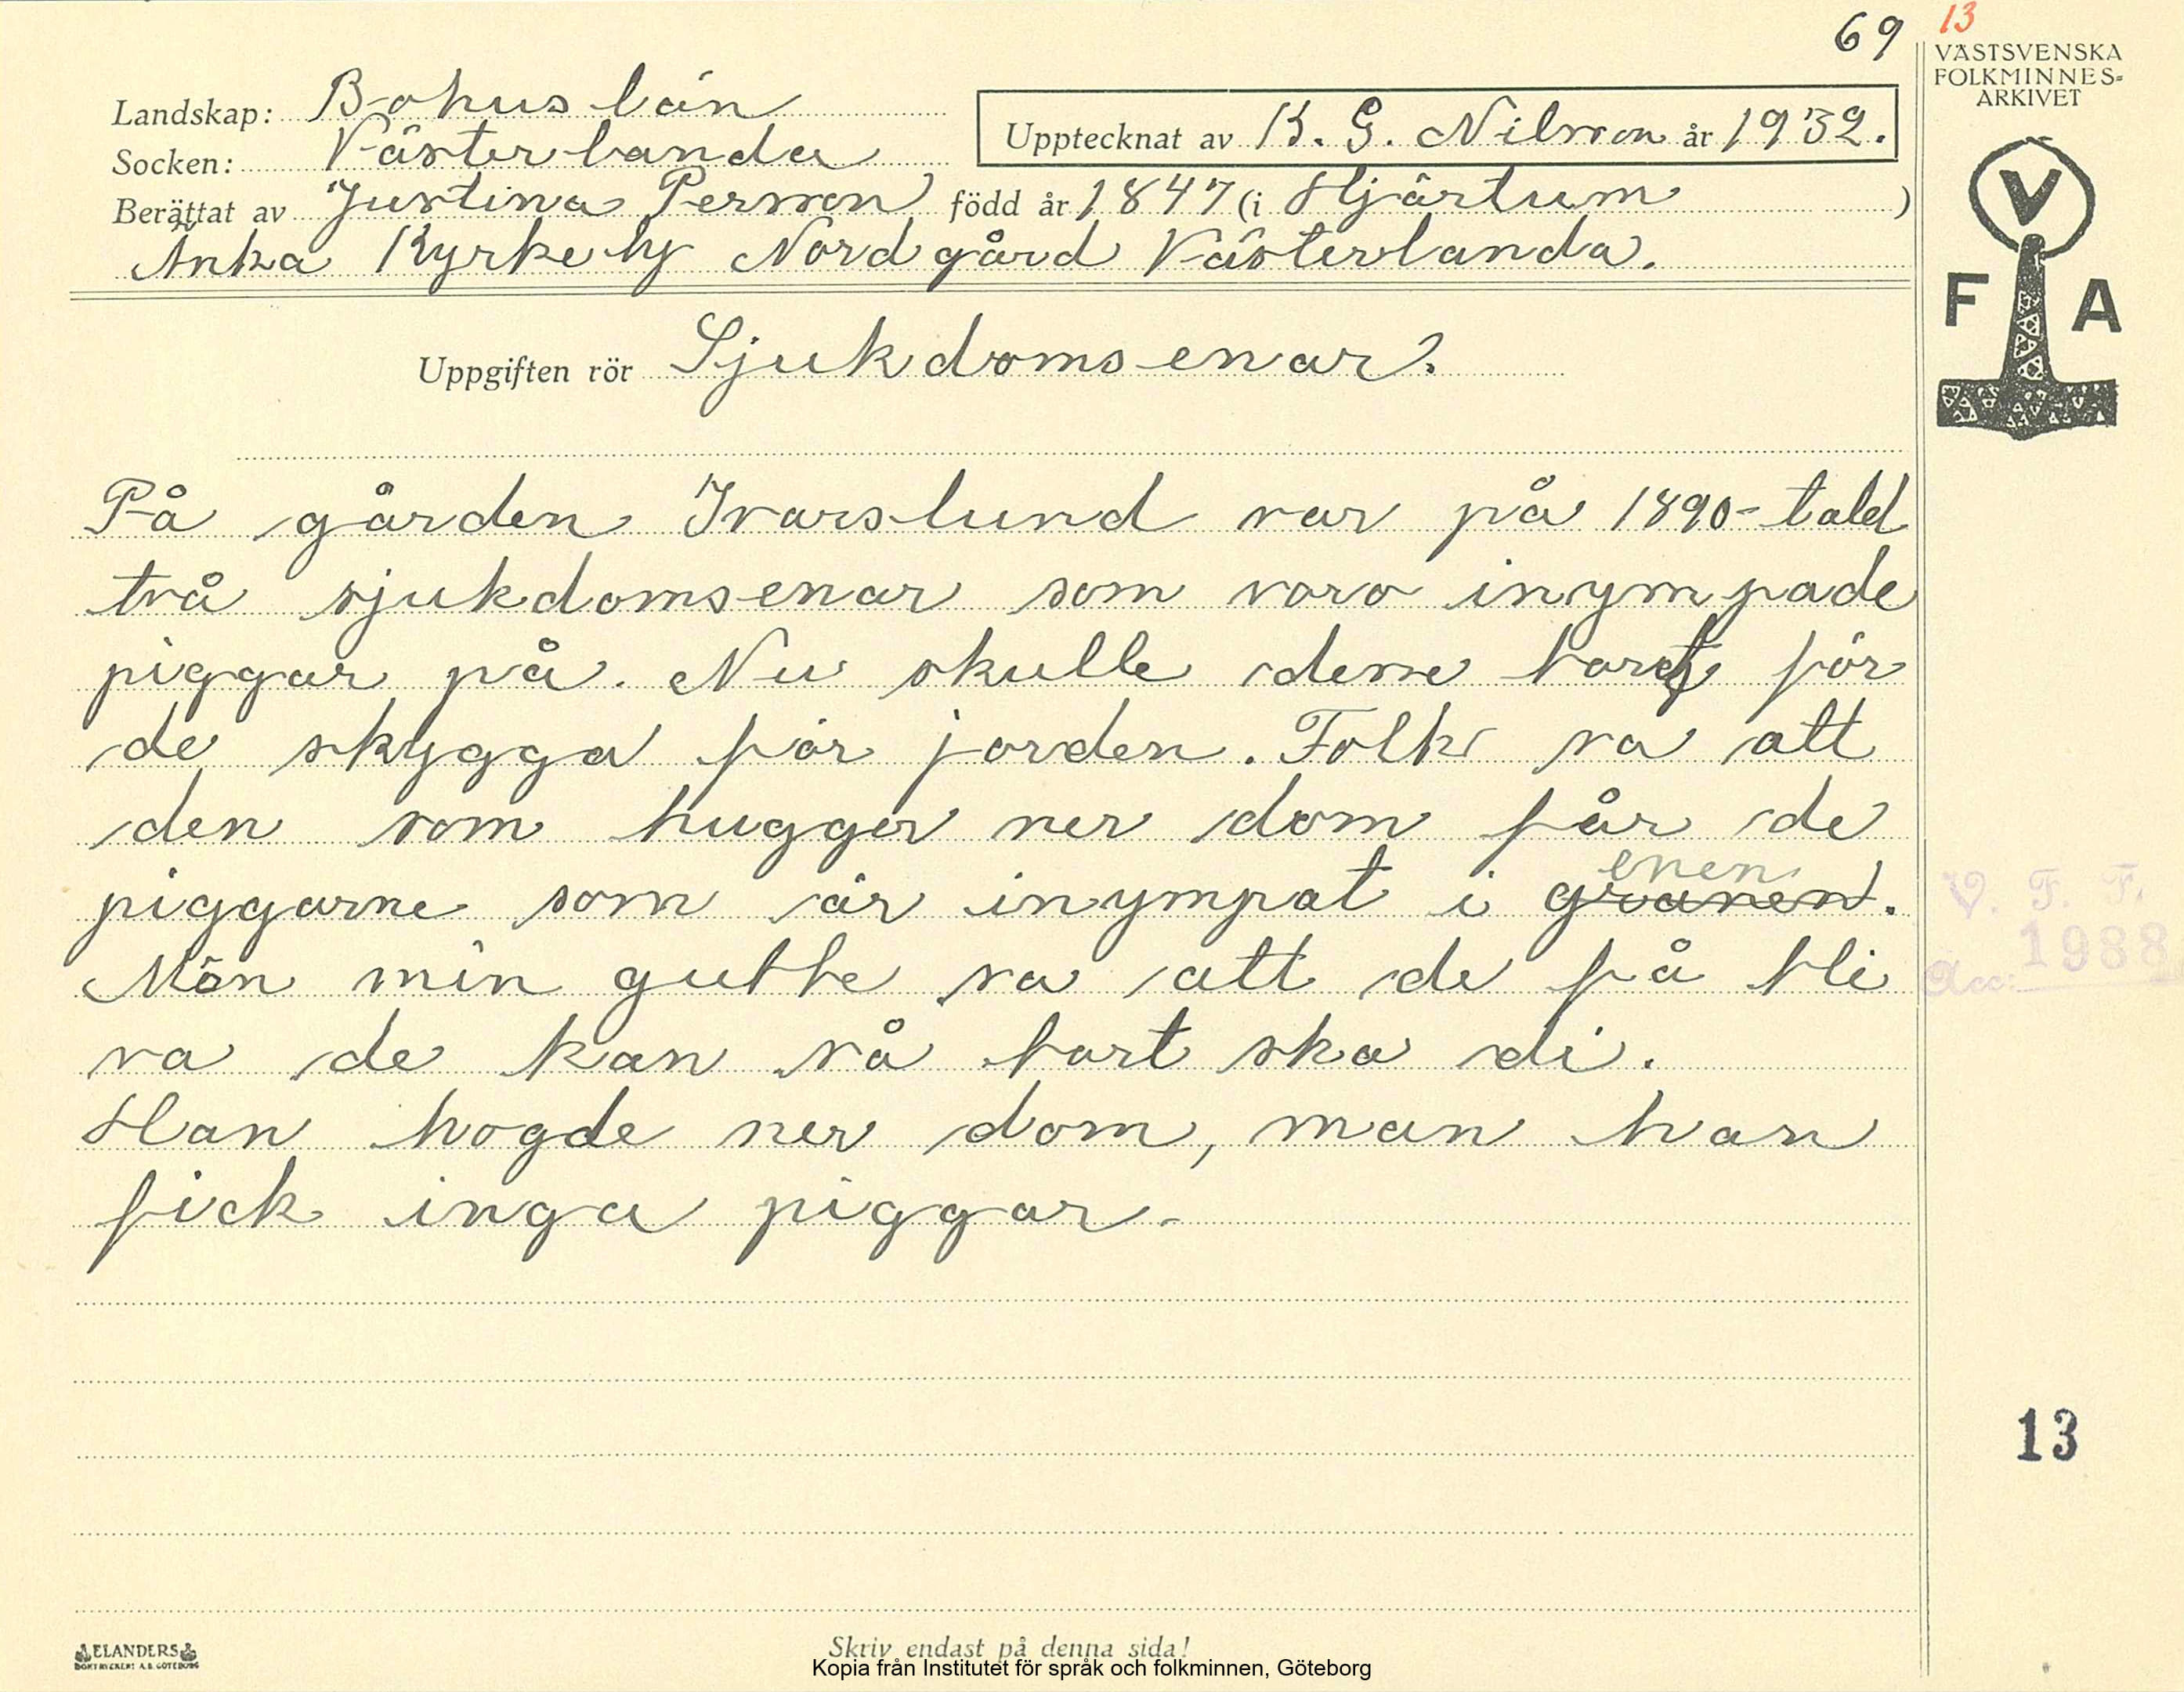 69 13
VÄSTSVENSKA
FOLKMINNES=
ARKIVET
Landskap: Bohuslän
Upptecknat av K. G. Nilsson år 1932.
Socken: Västerlanda
Berättat av Justina Persson född år 1847 (i Hjärtum )
Änka Kyrkeby Nordgård Västerlanda.
V
F A
Uppgiften rör Sjukdomsenar.
På gården Ivarslund var på 1890-tald
två sjukdomsenar som voro inympade
piggar på. Nu skulle desse bort för
de skygga för jorden. Folk sa att
den som hugger ner dom får de
enen
piggarne som är inympat i granen.
Män min gubbe sa att de få bli
va de kan så bort ska di.
Han hogde ner dom, man han
fick inga piggar.
V. F. F.
1988
Acc:
13
ELANDERS
BOKTRYCKERI A.B. GÖTEBORG
Skriv endast på denna sida!
Kopia från Institutet för språk och folkminnen, Göteborg